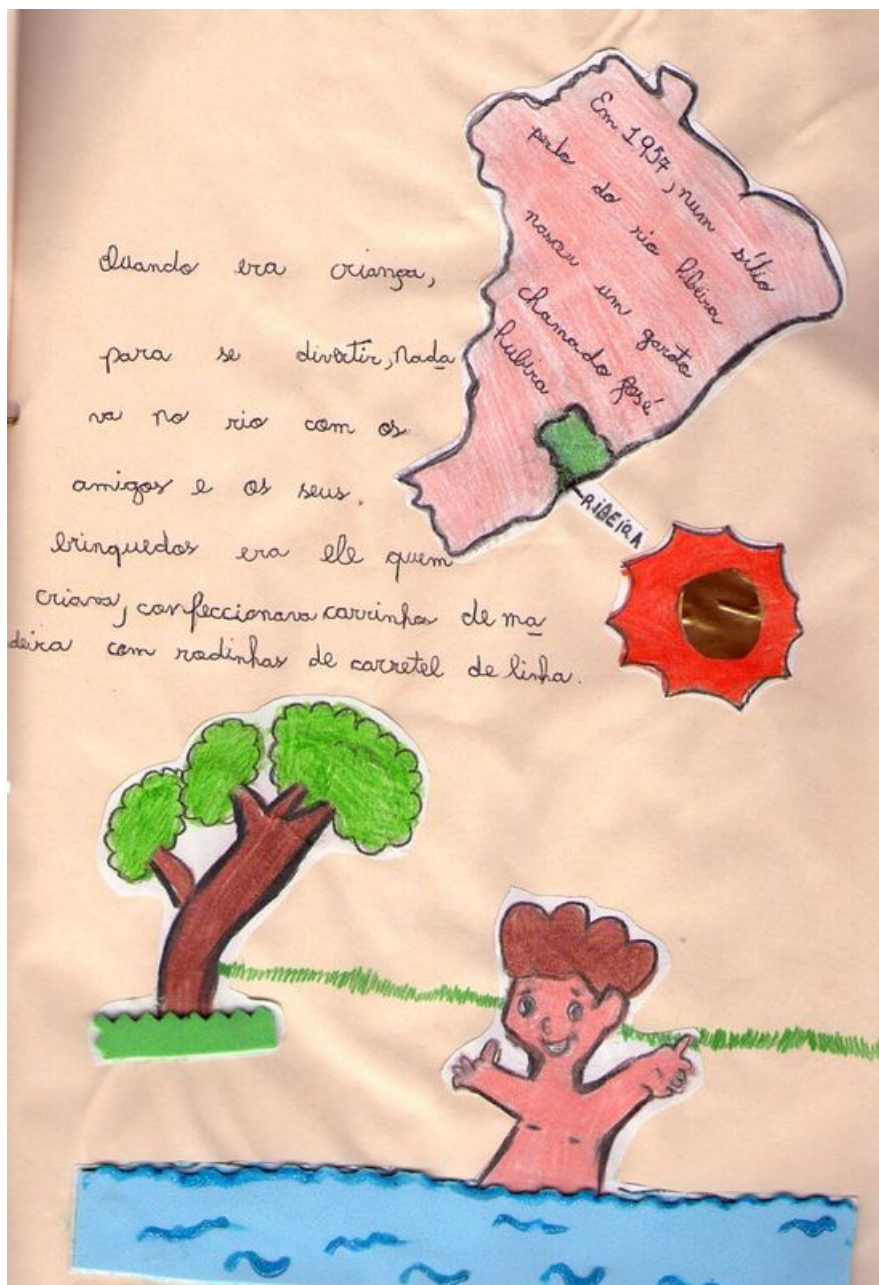 Em 1957, num sítio
perto do rio Ribeira
nasceu um garoto
chamado José
RIBEIRA
Quando era criança,
para se divertir, nada
va no rio com os
amigos e os seus.
brinquedos era ele quem
criava, confeccionava carrinhos de ma
deira com rodinhas de carretel de linha.